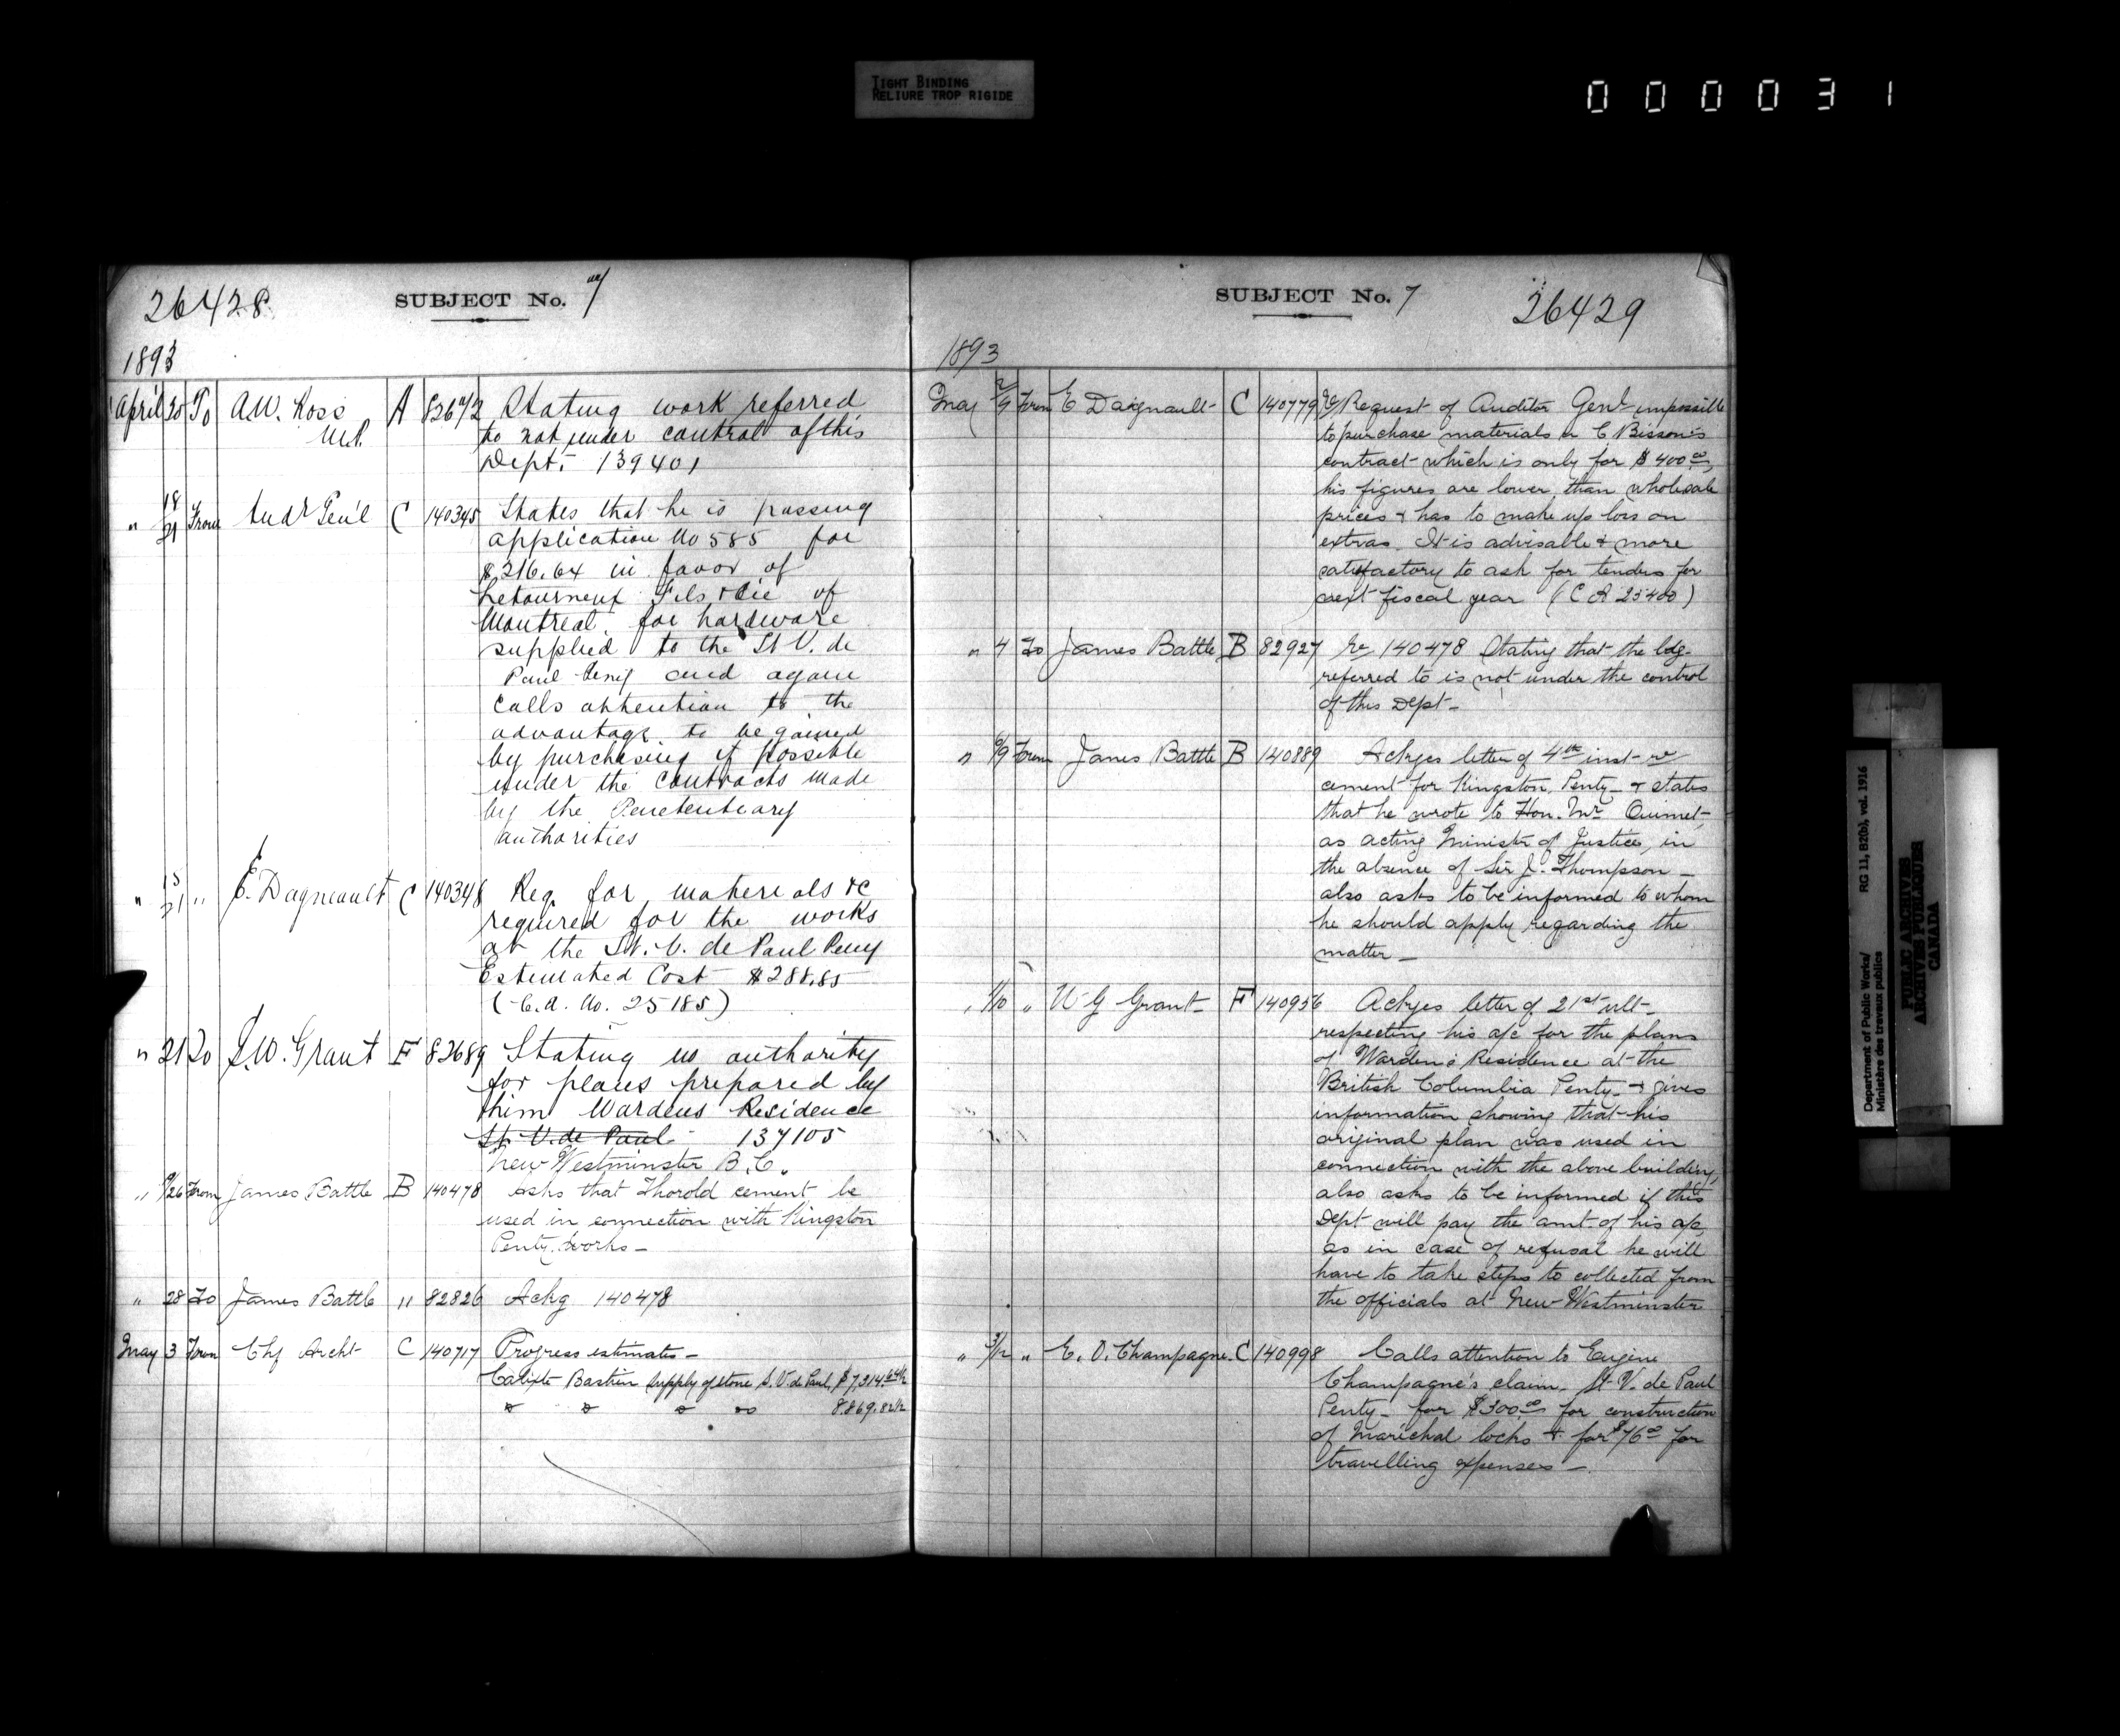 TIGHT BINDING
RELIURE TROP RIGIDE
000031
26428
SUBJECT No. 7
1893
April 20 To A.W. Ross A 82672 Stating work referred
M.P. to not under control of this
Dept. 139401
" 18/21 From Audr Gen'l C 140345 States that he is passing
application No 585 for
$216.64 in favor of
Letourneux Fils & Cie of
Montreal for hardware
supplied to the St V. de
Paul Peny and again
calls attention to the
advantage to be gained
by purchasing if possible
under the contracts made
by the Penetentiary
authorities
" 15/21 " E. Dagneault C 140348 Req. for matereals &c
required for the works
at the St. V. de Paul Peny
Estemated Cost $288.85
(C.A. No. 25185)
" 21 To J.W. Grant F 82689 Stating no authority
for places prepared by
him Wardens Residence
St. V. de Paul 137105
New Westminster B.C.
" /26 From James Battle B 140478 Asks that Thorold cement be
used in connection with Kingston
Penty. works -
" 28 To James Battle " 82826 Ackg 140478
May 3 From Chf Archt C 140717 Progress estimates -
Calixte Bastien supply of stone S. V. de Paul $7,314.64½
do do do do 8869.82½
SUBJECT No. 7
26429
1893
May 2/9 From E Daignault C 140779 Re Request of Auditor Genl impossible
to purchase materials in C Bisson's
contract which is only for $400.00,
his figures are lower than wholesale
prices & has to make up loss on
extras. It is advisable & more
satisfactory to ask for tenders for
next fiscal year (C A 25400)
" 4 To James Battle B 82927 Re 140478 Stating that the bdg.
referred to is not under the control
of this Dept -
" 6/9 From James Battle B 140889 Ackges letter of 4th inst - re
cement for Kingston Penty - & states
that he wrote to Hon. Mr Ouimet,
as acting Minister of Justice, in
the absence of Sir J. Thompson -
also asks to be informed to whom
he should apply regarding the
matter -
" 1/10 " W G Grant F 140956 Ackges letter of 21st ult -
respecting his a/c for the plans
of Warden's Residence at the
British Columbia Penty - & gives
information showing that his
original plan was used in
connection with the above building,
also asks to be informed if this
Dept will pay the amt of his a/c,
as in case of refusal he will
have to take steps to collected from
the officials at New Westminster
" 3/12 " E. O. Champagne C 140998 Calls attention to Eugene
Champagne's claim - St V. de Paul
Penty - for $300.00 for construction
of Marichal locks & for $76.00 for
travelling expenses -
Department of Public Works/
Ministère des travaux publics
RG 11, B2(b), vol. 1916
PUBLIC ARCHIVES
ARCHIVES PUBLIQUES
CANADA